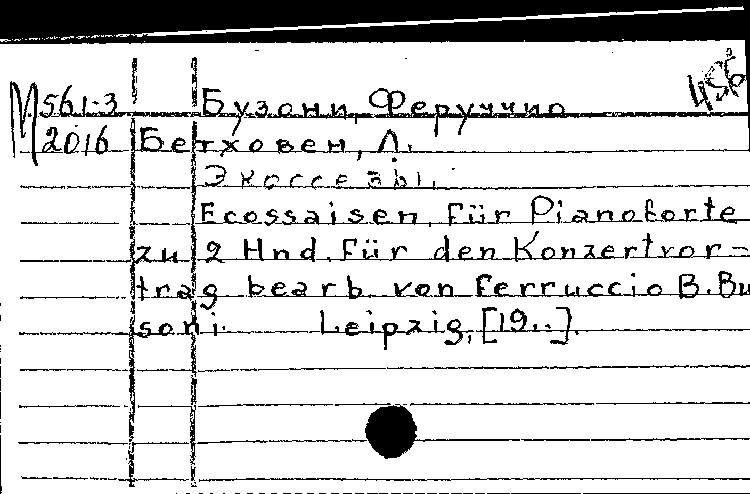 М 561-3 Бузони, Феруччио 456
2016 Бетховен, Л.
Экоссезы.
Ecossaisen für Pianoforte
zu 2 Hnd. Für den Konzertvor-
trag bearb. von Ferruccio B. Bu
soni. Leipzig, [19..].